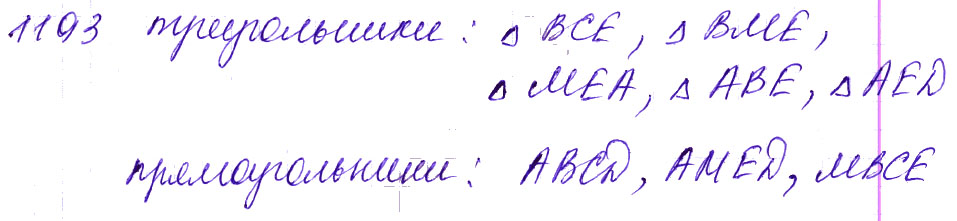 1193 треугольники: △ BCE, △ BME,
△ MEA, △ ABE, △ AED
прямоугольники: ABCD, AMED, MBCE